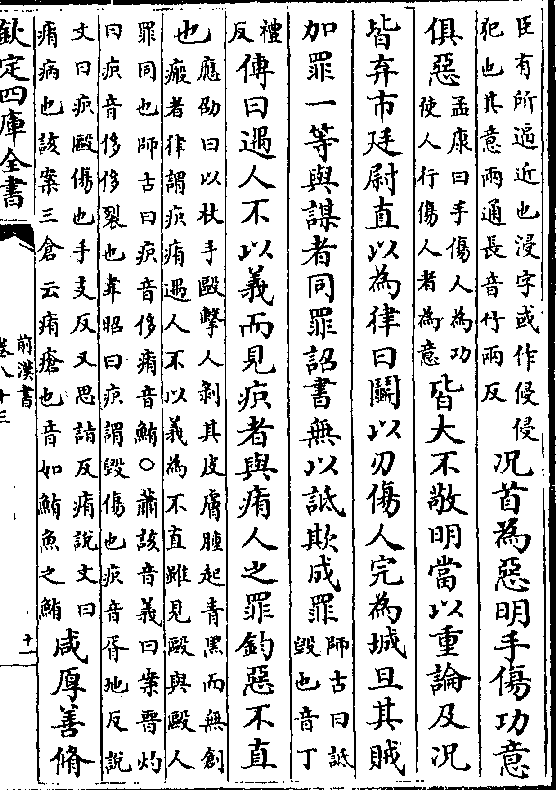 臣有所逼近也浸字或作侵侵
犯也其意兩通長音竹兩反
况首為惡明手傷功意
俱惡
孟康曰手傷人為功
使人行傷人者為意
皆大不敬明當以重論及况
皆弃市廷尉直以為律曰鬭以刃傷人完為城旦其賊
加罪一等與謀者同罪詔書無以詆欺成罪
師古曰詆
毀也音丁
禮
反
傳曰遇人不以義而見疻者與痏人之罪鈞惡不直
也
應劭曰以杖手毆擊人剥其皮膚腫起青黑而無創
瘢者律謂疻痏遇人不以義為不直雖見毆與毆人
罪同也師古曰疻音侈痏音鮪○蕭該音義曰案晉灼
曰疻音侈侈裂也韋昭曰疻謂毀傷也疻音胥地反說
文曰疻毆傷也手支反又思詣反痏說文曰
痏病也該案三倉云痏瘡也音如鮪魚之鮪
咸厚善脩
欽定四庫全書
前漢書
卷八十三
十一